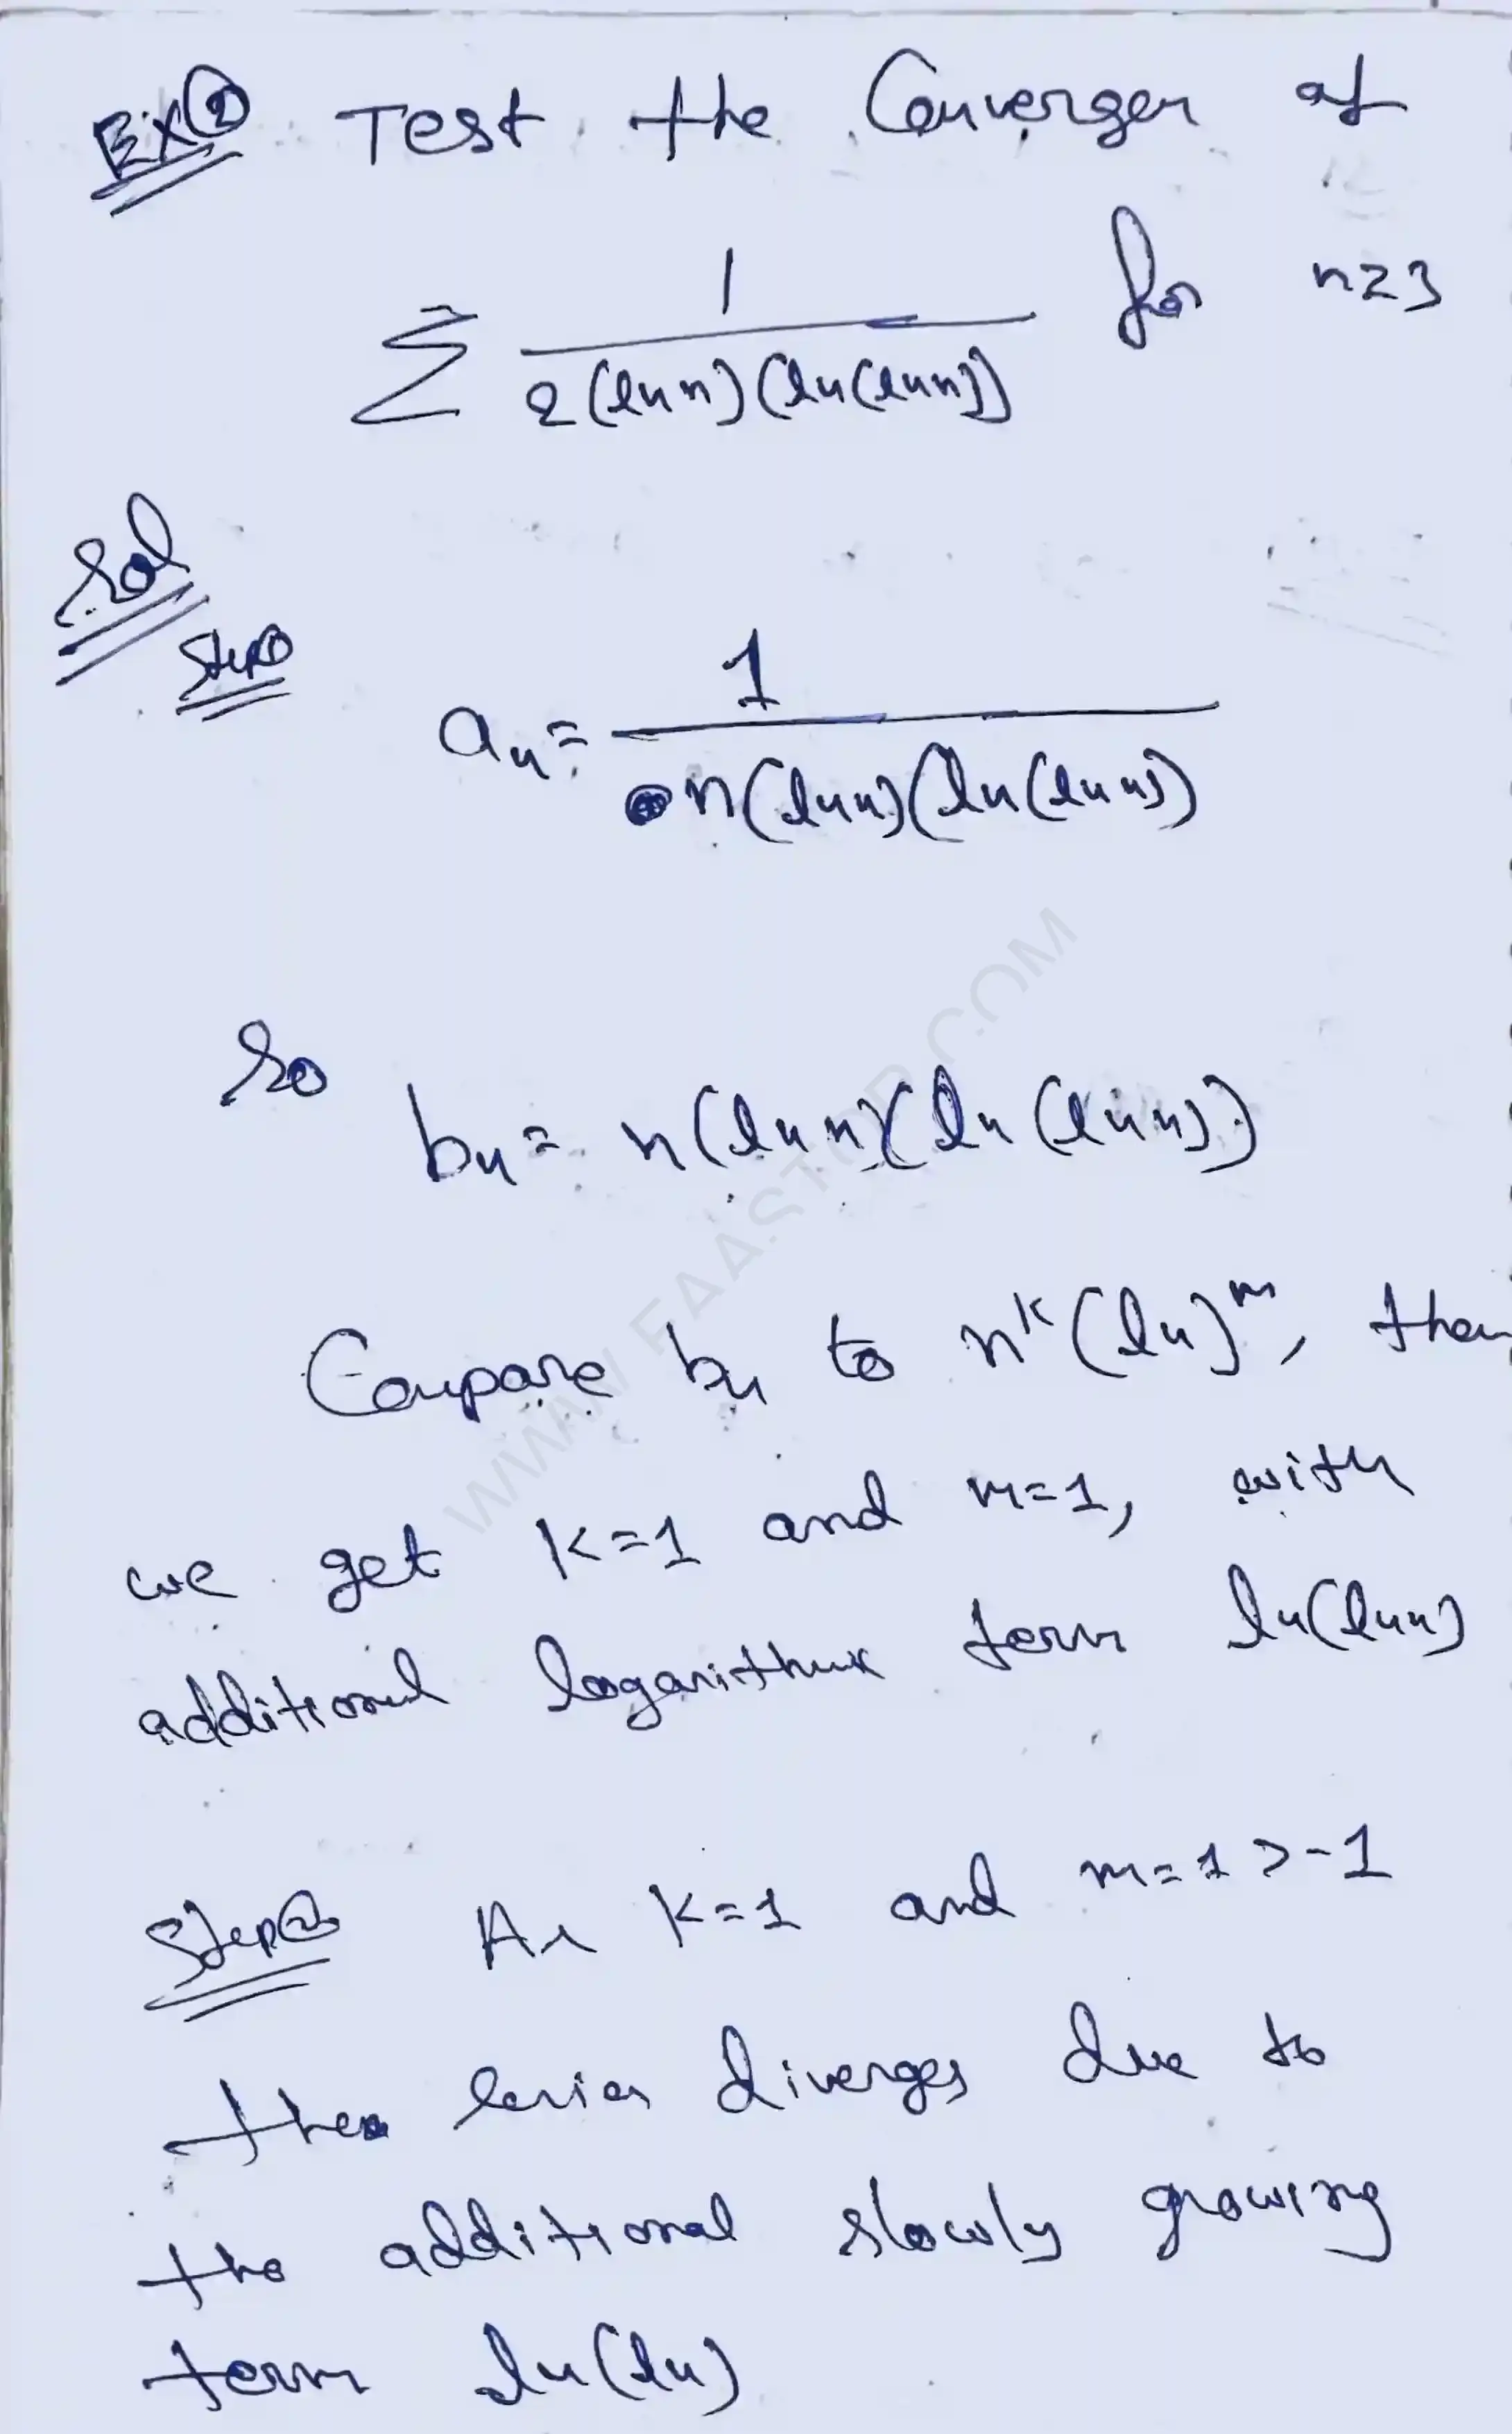 Ex② Test the Convergen of
Σ 1/2(ln n)(ln(ln n)) for n≥3
Sol
Step①
an = 1/n(ln n)(ln(ln n))
So
bn = n(ln n)(ln(ln n))
Compare bn to n^k (ln)^m, then
we get k=1 and m=1, with
additional logarithmic term ln(ln n)
Step② As k=1 and m=1 >-1
the series diverges due to
the additional slowly growing
term ln(ln)
WWW.FAASTOP.COM